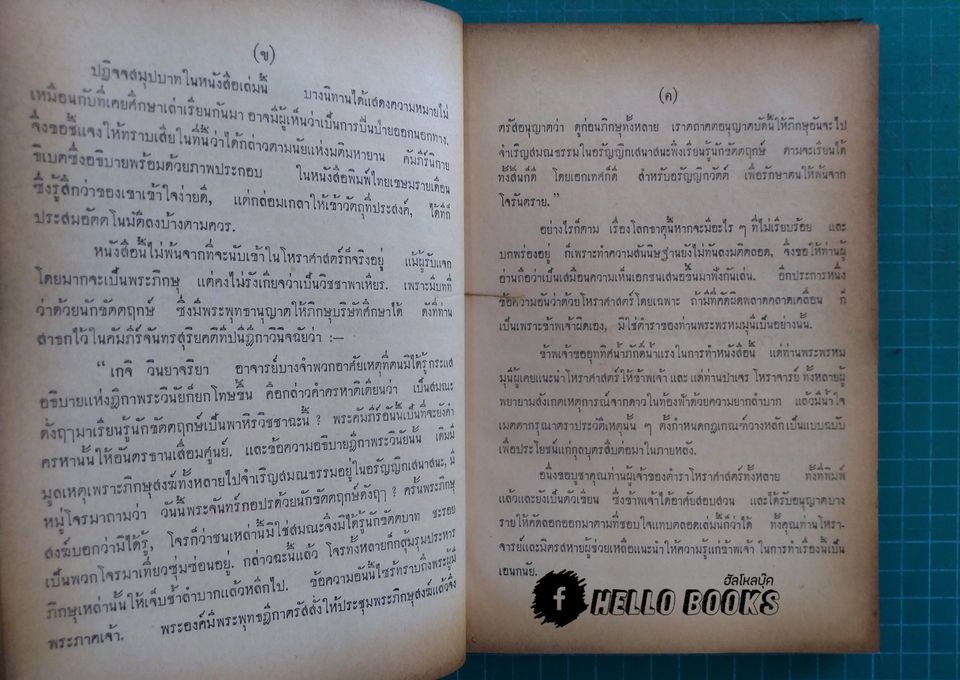 (ข)
ปฏิจจสมุปบาทในหนังสือเล่มนี้ บางนิทานได้แสดงความหมายไม่
เหมือนกับที่เคยศึกษาเล่าเรียนกันมา อาจมีผู้เห็นว่าเป็นการปีนป่ายออกนอกทาง.
จึงขอชี้แจงให้ทราบเสียในที่นี้ว่าได้กล่าวตามนัยแห่งมติมหายาน คัมภีร์นิกาย
ธิเบตซึ่งอธิบายพร้อมด้วยภาพประกอบ ในหนังสือพิมพ์ไทยเขษมรายเดือน
ซึ่งรู้สึกว่าของเขาเข้าใจง่ายดี, แต่กล่อมเกลาให้เข้าวัตถุที่ประสงค์, ได้ที่ก็
ประสมอัตตโนมัติลงบ้างตามควร.
หนังสือนี้ไม่พ้นจากที่จะนับเข้าในโหราศาสตร์ก็จริงอยู่ แม้ผู้รับแจก
โดยมากจะเป็นพระภิกษุ แต่คงไม่รังเกียจว่าเป็นวิชชาพาเหียร. เพราะมีบทที่
ว่าด้วยนักขัตตฤกษ์ ซึ่งมีพระพุทธานุญาตให้ภิกษุบริษัทศึกษาได้ ดังที่ท่าน
สาธกไว้ในคัมภีร์จันทรสุริยคติทีปนีฎีกาวินิจฉัยว่า :—
“ เกจิ วินยาจริยา อาจารย์บางจำพวกอาศัยเหตุที่ตนมิได้รู้กระแส
อธิบายแห่งฎีกาพระวินัยก็ยกโทษขึ้น คือกล่าวคำครหาติเตียนว่า เป็นสมณะ
ดังฤๅมาเรียนรู้นักขัตตฤกษ์เป็นพาหิรวิชชาฉะนี้ ? พระคัมภีร์อันนี้เป็นที่จะยังคำ
ครหานั้นให้อันตรธานเสื่อมศูนย์. และข้อความอธิบายฎีกาพระวินัยนั้น เดิมมี
มูลเหตุเพราะภิกษุสงฆ์ทั้งหลายไปจำเริญสมณธรรมอยู่ในอรัญญิกเสนาสนะ, มี
หมู่โจรมาถามว่า วันนี้พระจันทร์กอปรด้วยนักขัตตฤกษ์ดังฤๅ ? ครั้นพระภิกษุ
สงฆ์บอกว่ามิได้รู้, โจรก็ว่าชนเหล่านี้มิใช่สมณะจึงมิได้รู้นักขัตบาท ชะรอย
เป็นพวกโจรมาเที่ยวซุ่มซ่อนอยู่. กล่าวฉะนี้แล้ว โจรทั้งหลายก็กลุ้มรุมประหาร
ภิกษุเหล่านั้นให้เจ็บช้ำลำบากแล้วหลีกไป. ข้อความอันนี้ไซร้ทราบถึงพระผู้มี
พระภาคเจ้า. พระองค์มีพระพุทธฎีกาตรัสสั่งให้ประชุมพระภิกษุสงฆ์แล้วจึง
(ค)
ตรัสอนุญาตว่า ดูก่อนภิกษุทั้งหลาย เราตถาคตอนุญาตบัดนี้ให้ภิกษุอันจะไป
จำเริญสมณธรรมในอรัญญิกเสนาสนะพึงเรียนรู้นักขัตตฤกษ์ ตามจะเรียนได้
ทั้งสิ้นก็ดี โดยเอกเทศก็ดี สำหรับอรญญิกวัตต์ เพื่อรักษาตนให้พ้นจาก
โจรันตราย.”
อย่างไรก็ตาม เรื่องโลกธาตุนี้หากจะมีอะไร ๆ ที่ไม่เรียบร้อย และ
บกพร่องอยู่ ก็เพราะทำความสันนิษฐานยังไม่ทันลงมติตลอด, จึงขอให้ท่านผู้
อ่านถือว่าเป็นเสมือนความเห็นเอกชนเสนอขึ้นมาฟังกันเล่น. อีกประการหนึ่ง
ข้อความอันว่าด้วยโหราศาสตร์โดยเฉพาะ ถ้ามีที่ตัดผิดพลาดคลาดเคลื่อน ก็
เป็นเพราะข้าพเจ้าผิดเอง, มิใช่ตำราของท่านพระพรหมมุนีเป็นอย่างนั้น.
ข้าพเจ้าขออุททิศน้ำภักดีน้ำแรงในการทำหนังสือนี้ แด่ท่านพระพรหม
มุนีผู้เคยแนะนำโหราศาสตร์ให้ข้าพเจ้า และ แด่ท่านปาเจร โหราจารย์ ทั้งหลายผู้
พยายามสังเกตเหตุการณ์จากดาวในท้องฟ้าด้วยความยากลำบาก แล้วมีน้ำใจ
เมตตากรุณาตราประวัติเหตุนั้น ๆ ตั้งกำหนดกฎเกณฑ์วางหลักเป็นแบบฉบับ
เพื่อประโยชน์แก่กุลบุตรสืบต่อมาในภายหลัง.
อนึ่งขอบูชาคุณท่านผู้เจ้าของตำราโหราศาสตร์ทั้งหลาย ทั้งที่พิมพ์
แล้วและยังเป็นตัวเขียน ซึ่งข้าพเจ้าได้อาศัยสอบสวน และได้รับอนุญาตบาง
รายให้คัดลอกออกมาตามที่ชอบใจแทบตลอดเล่มนี้ก็ว่าได้ ทั้งคุณท่านโหรา-
จารย์และมิตรสหายผู้ช่วยเหลือแนะนำให้ความรู้แก่ข้าพเจ้า ในการทำเรื่องนี้เป็น
เอนกนัย.
ฮัลโหลบุ๊ค
f HELLO BOOKS